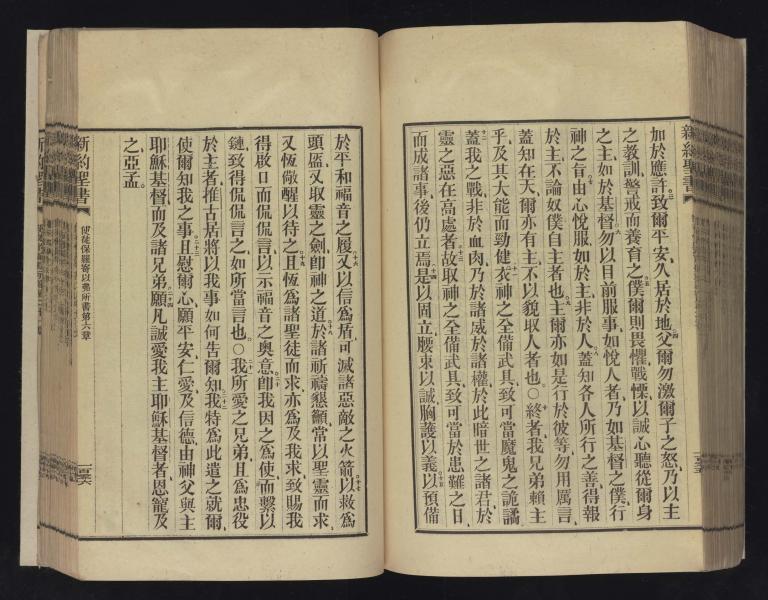 新約聖書
加於應許致爾平安久居於地父爾勿激爾子之怒乃以主
之教訓警戒而養育之僕爾則畏懼戰慄以誠心聽從爾身
之主如於基督勿以目前服事如悅人者乃如基督之僕行
神之旨由心悅服如於主非於人蓋知各人所行之善得報
於主不論奴僕自主者也主爾亦如是行於彼等勿用厲言
蓋知在天爾亦有主不以貌取人者也○終者我兄弟賴主
乎及其大能而勁健衣神之全備武具致可當魔鬼之詭譎
蓋我之戰非於血肉乃於諸宬於諸權於此暗世之諸君於
靈之惡在高處者故取神之全備武具致可當於患難之日
而成諸事後仍立焉是以固立腰束以誠胸護以義以預備
於平和福音之履又以信為盾可滅諸惡敵之火箭以救為
頭盔又取靈之劍卽神之道於諸祈禱懇籲常以聖靈而求
又恆儆醒以待之且恆為諸聖徒而求亦為及我求致賜我
得啟口而侃侃言以示福音之奧意卽我因之為使而繫以
鏈致得侃侃言之如所當言也○我所愛之兄弟且為忠役
於主者推古居將以我事如何吿爾知我特為此遣之就爾
使爾知我之事且慰爾心願平安仁愛及信德由神父與主
耶穌基督而及諸兄弟願凡誠愛我主耶穌基督者恩寵及
之亞孟
新約聖書
使徒保羅寄以弗所書第六章